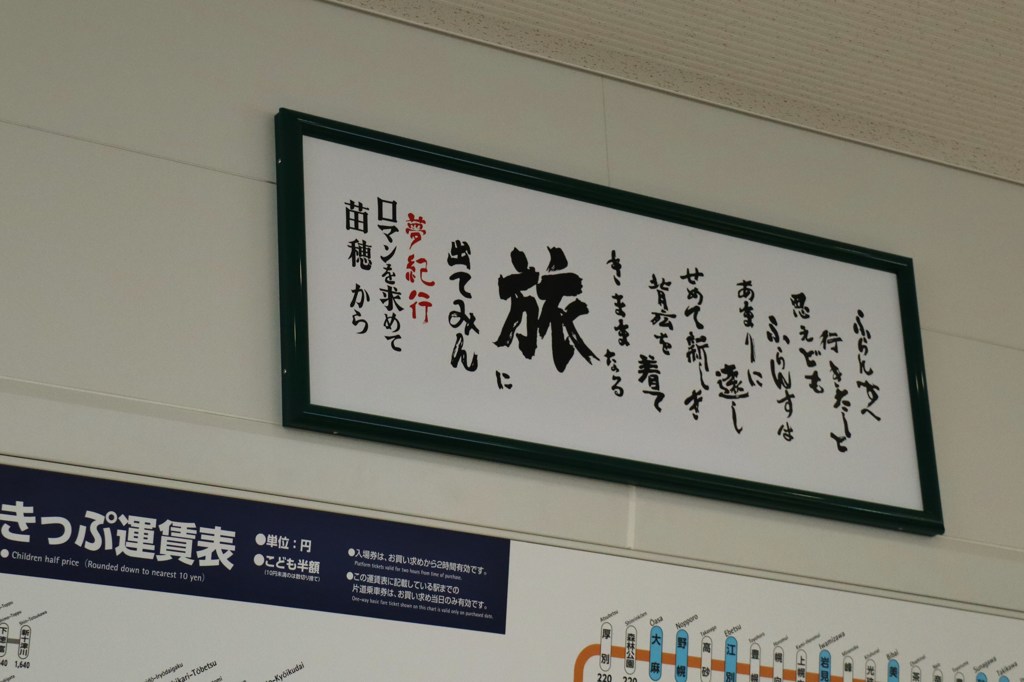 ふらんすへ
行きたしと
思えども
ふらんすは
あまりに
遠し
せめて新しき
背広を
着て
きままなる
旅
に
出てみん
夢紀行
ロマンを求めて
苗穂から
きっぷ運賃表
● Children half price (Rounded down to nearest 10 yen)
●単位：円
●こども半額
(10円未満のは数切り捨て)
●入場券は、お買い求めから2時間有効です。
Platform tickets valid for two hours from time of purchase.
●この運賃表に記載している駅までの
片道乗車券は、お買い求め当日のみ有効です。
One-way basic fare ticket shown on this chart is valid only on purchased date.
新十津川
1,640
40
kari-Tōbetsu
o-Kyōikudai
厚別
220
森林公園
220
Ōasa
大麻
Nopporo
野幌
高砂
Ebetsu
江別
豊幌
幌向
上幌向
Iwamizawa
岩見
峰